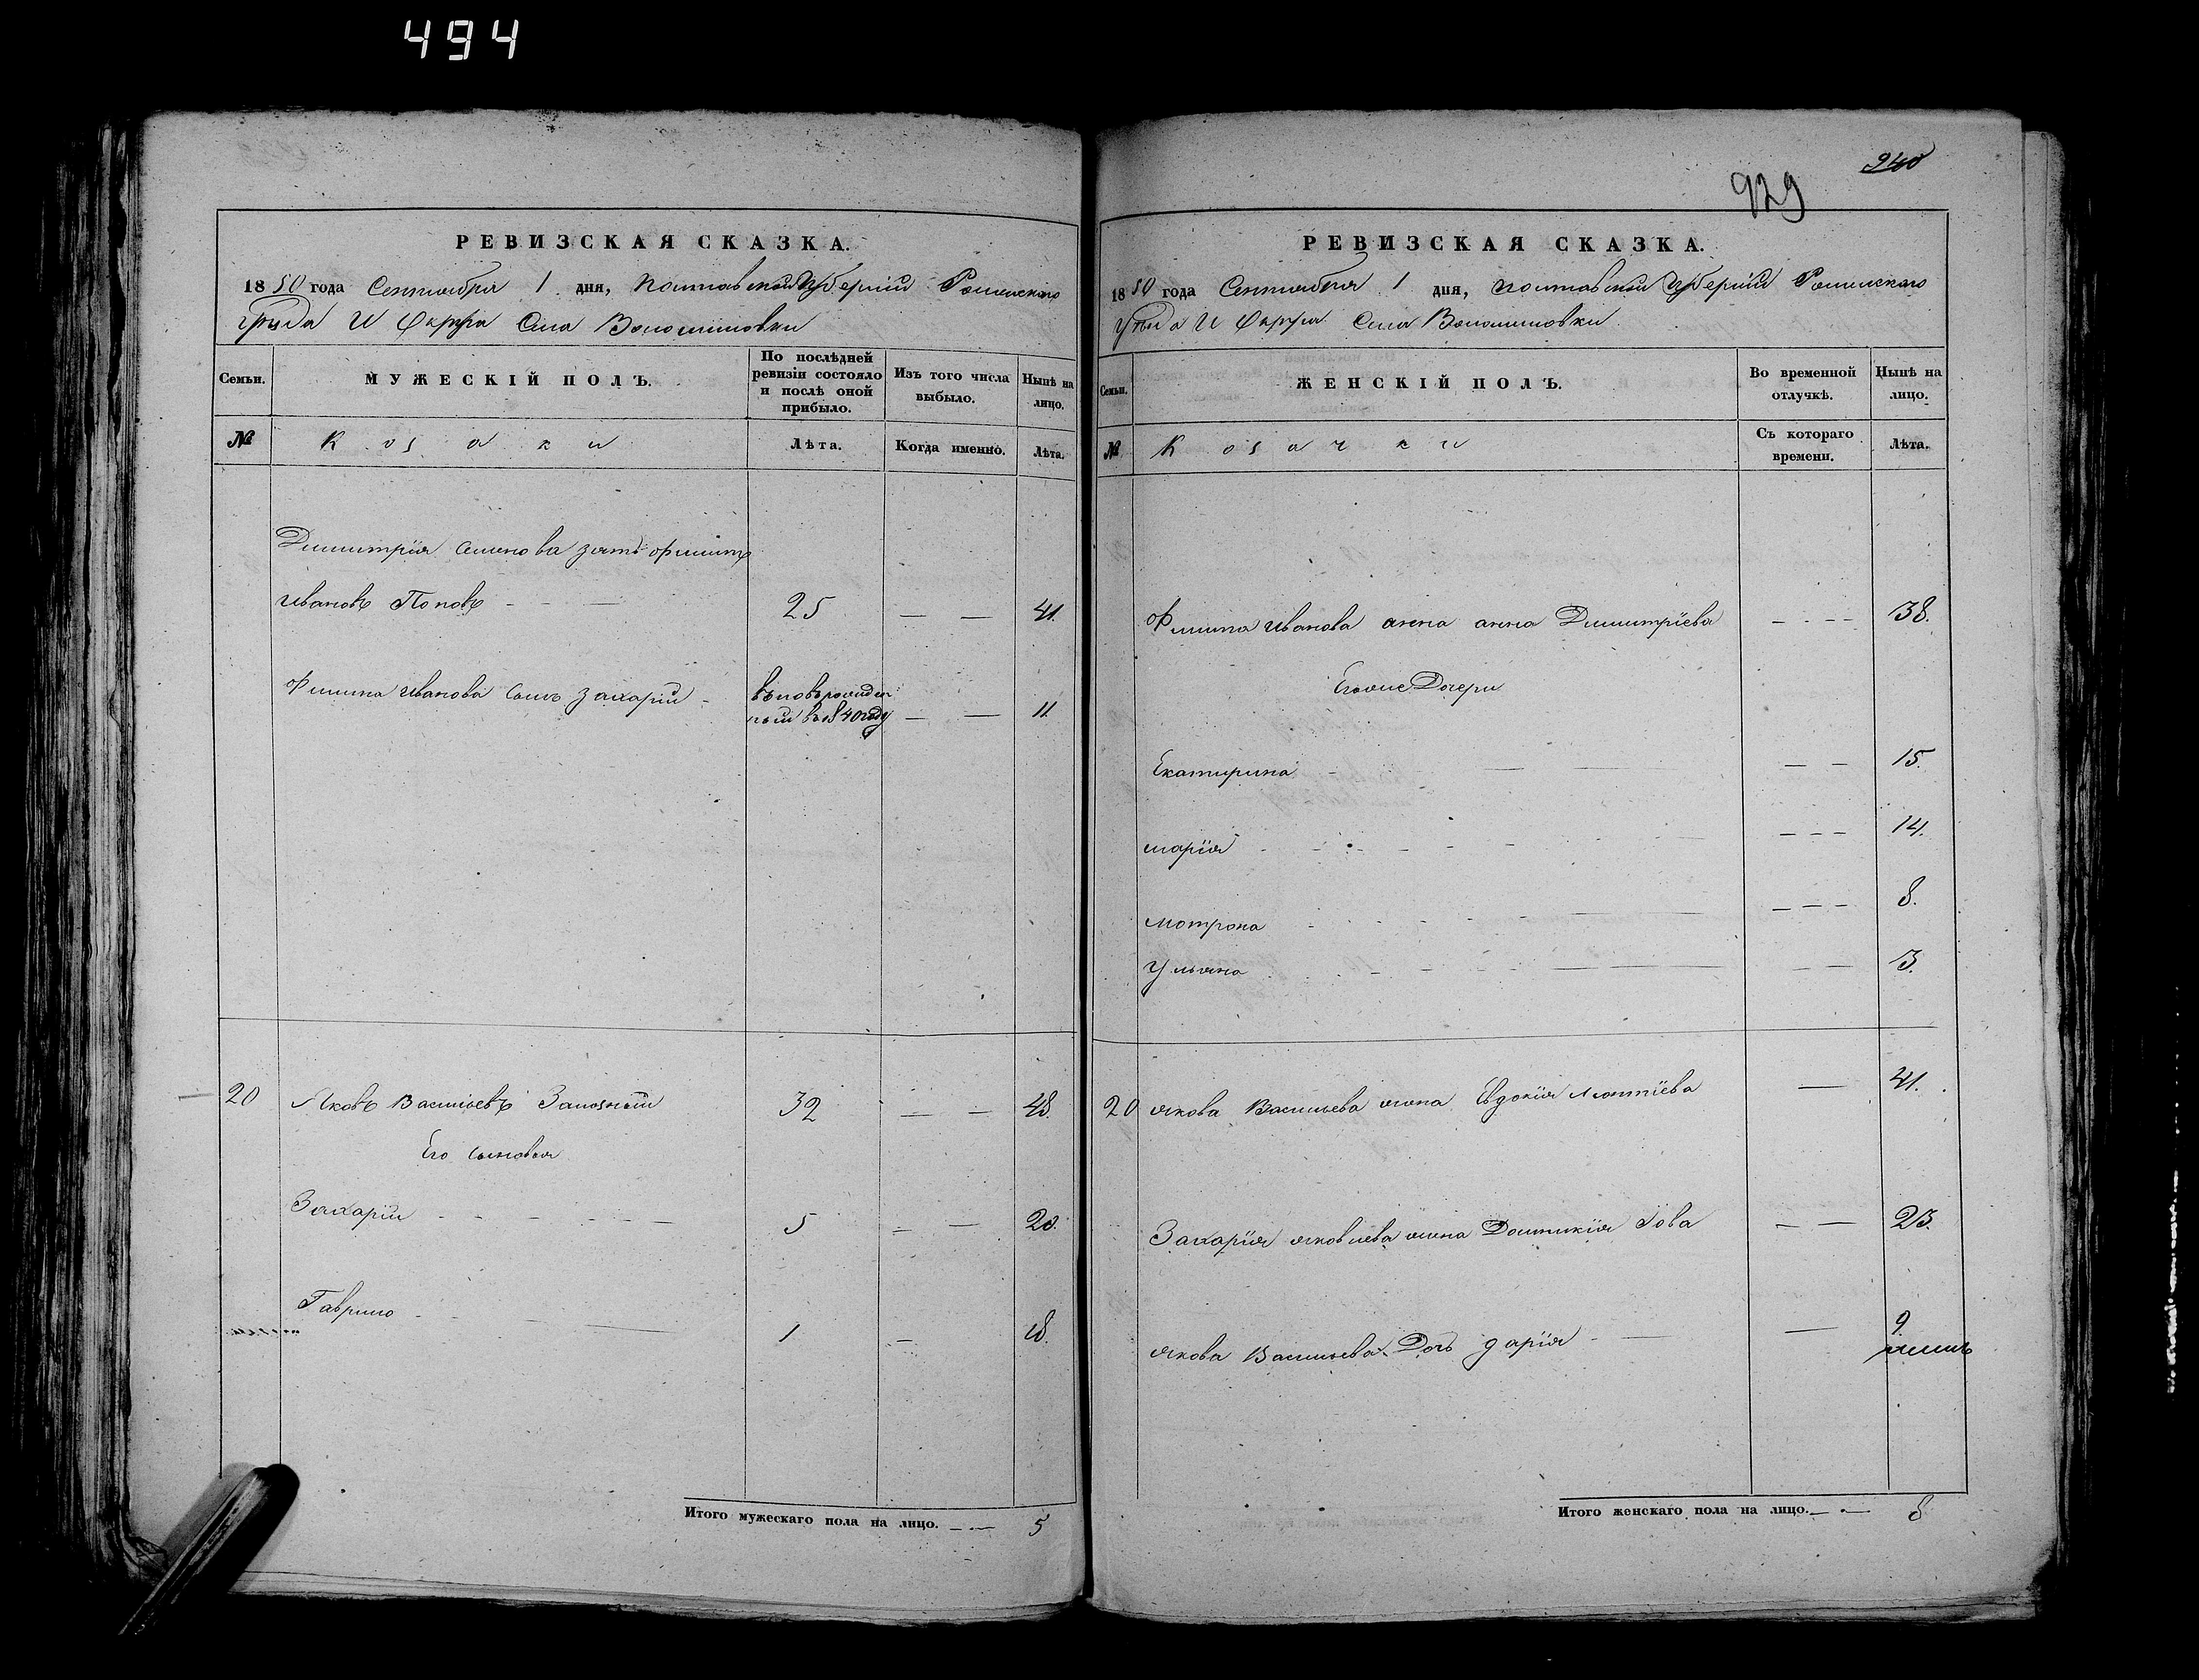 494
РЕВИЗСКАЯ СКАЗКА.
1850 года Сентября 1 дня, Полтавской Губерніи Роменского
Уѣзда И Округа Села Волошиновки
Семьи.
МУЖЕСКІЙ ПОЛЪ.
По послѣдней ревизіи состояло и послѣ оной прибыло.
Изъ того числа выбыло.
Нынѣ на лицо.
№
Козаки
Лѣта.
Когда именно.
Лѣта.
Димитрія Семенова зять Филипъ
Ивановъ Поповъ - — 25 — — 41.
Филипа Иванова сынъ Захарій - вновьрожден
ный въ 1840 году — — 11.
20 Яковъ Васильевъ Зализный 32 — — 48.
Его сыновья
Захарій - - - - - — 5 — — 20.
Гаврило - - — 1 — 18.
Итого мужескаго пола на лицо. — — 5
240
929
РЕВИЗСКАЯ СКАЗКА.
1850 года Сентября 1 дня, Полтавской Губерніи Роменского
Уѣзда И Округа Села Волошиновки
Семьи.
ЖЕНСКІЙ ПОЛЪ.
Во временной отлучкѣ.
Нынѣ на лицо.
№
Козачки
Съ котораго времени.
Лѣта.
Филипа Иванова жена Анна Димитріева — - - - 38.
Егоже Дочери
Екатирина - — — — — 15.
Марія - - - - - — - — 14.
Мотрона - - — — - — 8.
Ульяна - - - — — — 13.
20 Якова Васильева жена Евдокія Леонтіева — 41.
Захарія Яковлева жена Домникія Іова — — 23.
Якова Васильева Дочь Дарія - — — 9.
Итого женскаго пола на лицо. — — 8